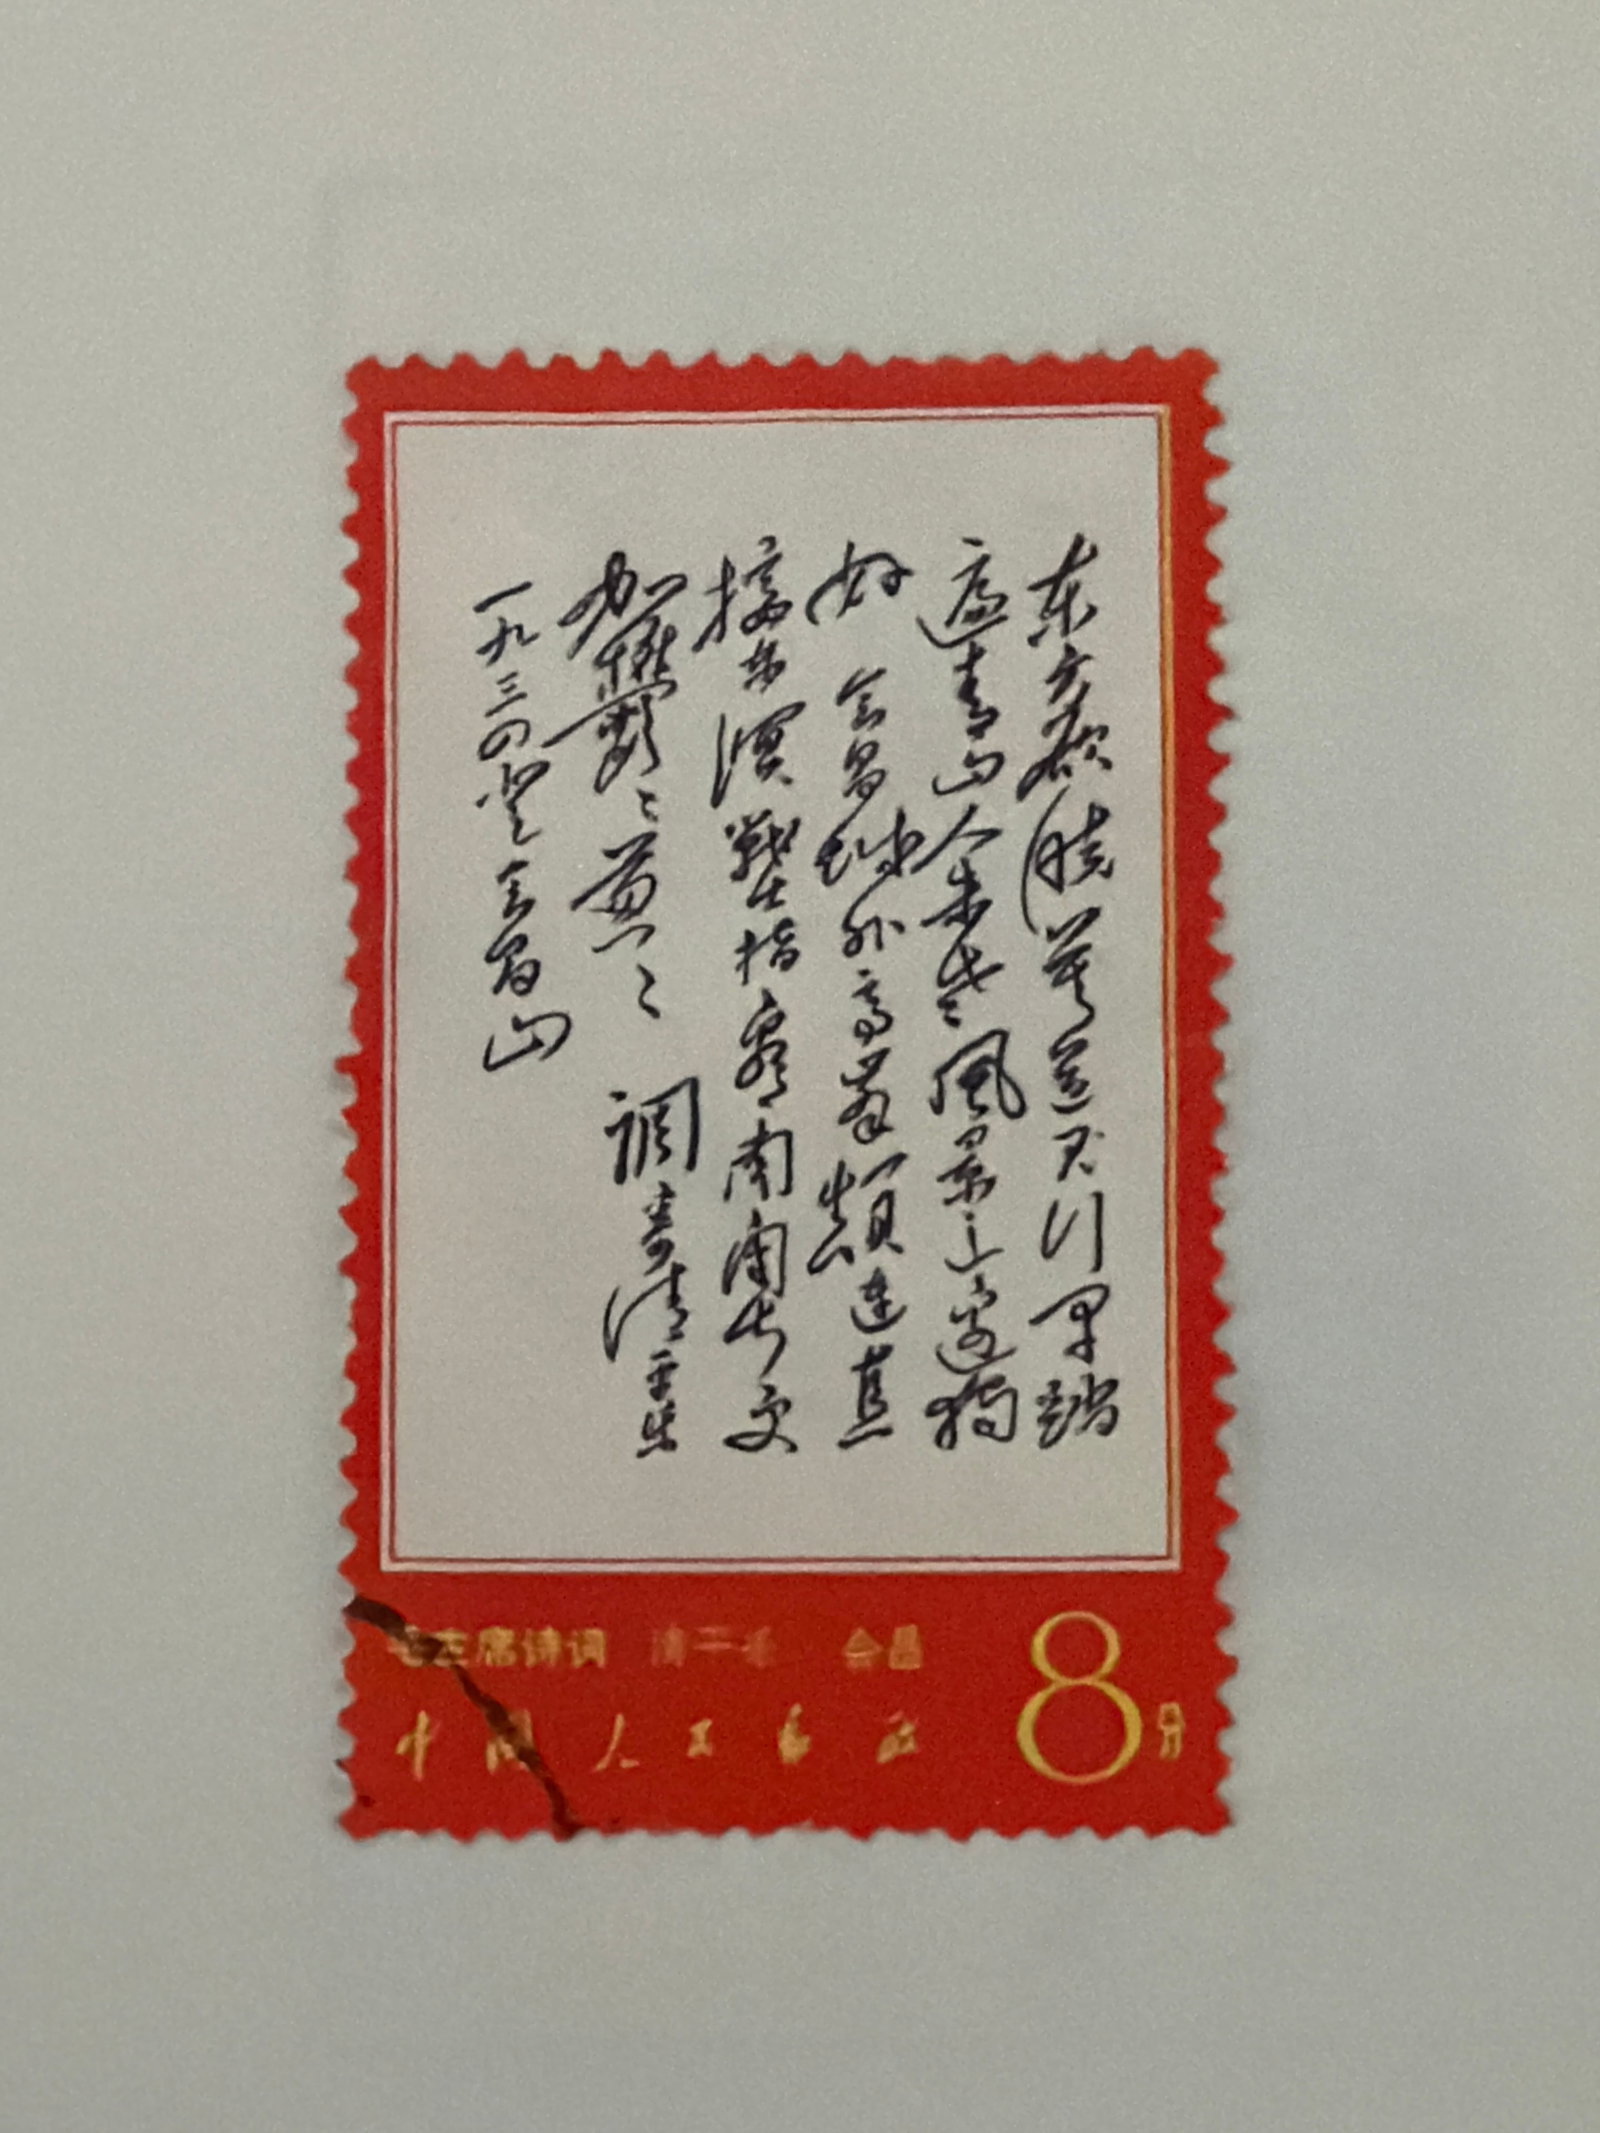 东方欲晓莫道君行早踏
遍青山人未老風景这边独
好 会昌城外高峰顛连直
接东溟戰士指看南粤更
加鬱〻葱〻 调寄清平乐
一九三四登会昌山
毛主席诗词 清平乐 会昌
中国人民邮政
8分